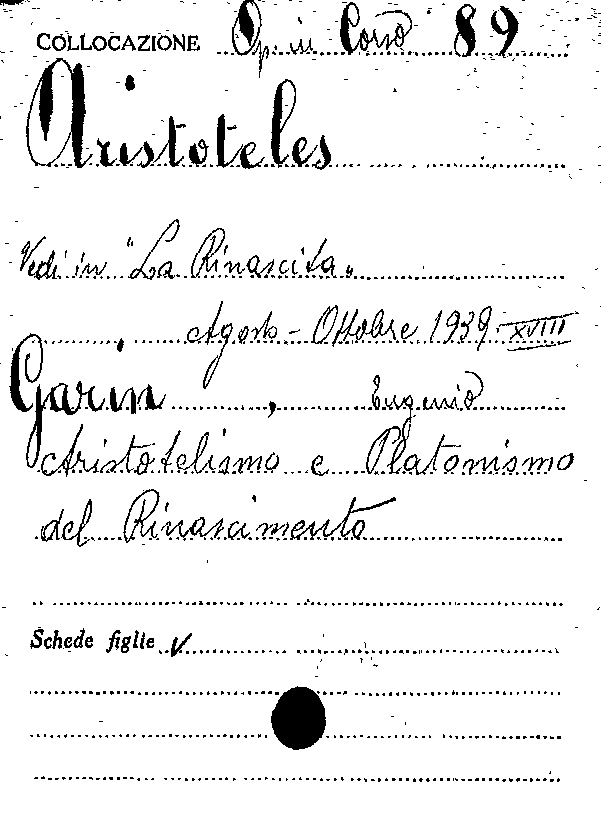 COLLOCAZIONE Op. in Corso 89
Aristoteles
Vedi in "La Rinascita"
Agosto - Ottobre 1939 - XVIII
Garin, Eugenio
Aristotelismo e Platonismo
del Rinascimento
Schede figlie V